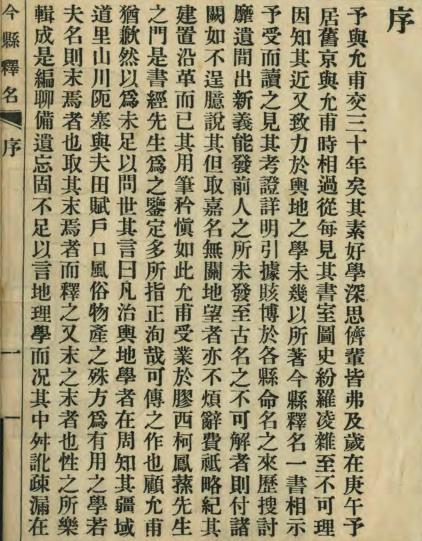 序
予與允甫交三十年矣其素好學深思儕輩皆弗及歲在庚午予
居舊京與允甫時相過從每見其書室圖史紛羅凌雜至不可理
因知其近又致力於輿地之學未幾以所著今縣釋名一書相示
予受而讀之見其考證詳明引據賅博於各縣命名之來歷搜討
靡遺間出新義能發前人之所未發至古名之不可解者則付諸
闕如不逞臆說其但取嘉名無關地望者亦不煩辭費祗略紀其
建置沿革而已其用筆矜愼如此允甫受業於膠西柯鳳蓀先生
之門是書經先生爲之鑒定多所指正洵哉可傳之作也顧允甫
猶歉然以爲未足以問世其言曰凡治輿地學者在周知其疆域
道里山川阨塞與夫田賦戶口風俗物產之殊方爲有用之學若
夫名則末焉者也取其末焉者而釋之又末之末者也性之所樂
輯成是編聊備遺忘固不足以言地理學而况其中舛訛疎漏在
今縣釋名 序 一